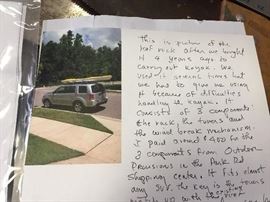 This is picture of the
roof rack after we bought
it 4 years ago to
carry out kayak. We
used it several times but
we has to give me using
it because of difficulties
handling the kayak. It
consists of 3 components:
the rack, the towers and
the wind break mechanism.
I paid around $400 for the
3 components from Outdoor
Provisions in the Park Rd
Shopping center. It fits almost
any SUV. The key is the towers